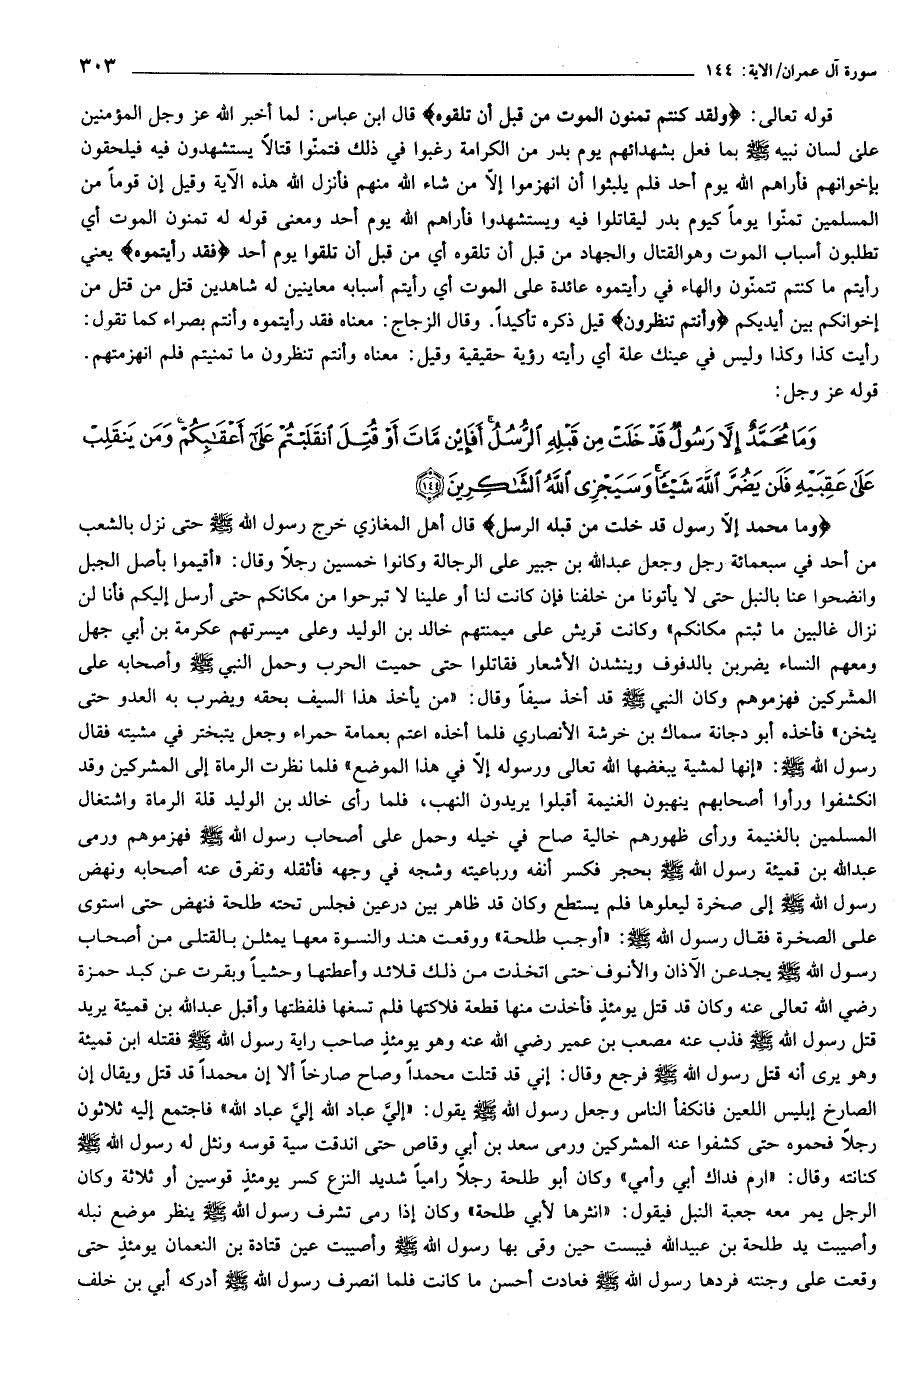 سورة آل عمران/ الآية: ١٤٤ ٣٠٣
قوله تعالى: ﴿ولقد كنتم تمنون الموت من قبل أن تلقوه﴾ قال ابن عباس: لما أخبر الله عز وجل المؤمنين
على لسان نبيه ﷺ بما فعل بشهدائهم يوم بدر من الكرامة رغبوا في ذلك فتمنّوا قتالاً يستشهدون فيه فيلحقون
بإخوانهم فأراهم الله يوم أحد فلم يلبثوا أن انهزموا إلاّ من شاء الله منهم فأنزل الله هذه الآية وقيل إن قوماً من
المسلمين تمنّوا يوماً كيوم بدر ليقاتلوا فيه ويستشهدوا فأراهم الله يوم أحد ومعنى قوله له تمنون الموت أي
تطلبون أسباب الموت وهوالقتال والجهاد من قبل أن تلقوه أي من قبل أن تلقوا يوم أحد ﴿فقد رأيتموه﴾ يعني
رأيتم ما كنتم تتمنّون والهاء في رأيتموه عائدة على الموت أي رأيتم أسبابه معاينين له شاهدين قتل من قتل من
إخوانكم بين أيديكم ﴿وأنتم تنظرون﴾ قيل ذكره تأكيداً. وقال الزجاج: معناه فقد رأيتموه وأنتم بصراء كما تقول:
رأيت كذا وكذا وليس في عينك علة أي رأيته رؤية حقيقية وقيل: معناه وأنتم تنظرون ما تمنيتم فلم انهزمتهم.
قوله عز وجل:
وَمَا مُحَمَّدٌ إِلَّا رَسُولٌ قَدْ خَلَتْ مِن قَبْلِهِ ٱلرُّسُلُ ۚ أَفَإِي۟ن مَّاتَ أَوْ قُتِلَ ٱنقَلَبْتُمْ عَلَىٰٓ أَعْقَـٰبِكُمْ ۚ وَمَن يَنقَلِبْ
عَلَىٰ عَقِبَيْهِ فَلَن يَضُرَّ ٱللَّهَ شَيْـًٔا ۗ وَسَيَجْزِى ٱللَّهُ ٱلشَّـٰكِرِينَ ١٤٤
﴿وما محمد إلاّ رسول قد خلت من قبله الرسل﴾ قال أهل المغازي خرج رسول الله ﷺ حتى نزل بالشعب
من أحد في سبعمائة رجل وجعل عبدالله بن جبير على الرجالة وكانوا خمسين رجلاً وقال: «أقيموا بأصل الجبل
وانضحوا عنا بالنبل حتى لا يأتونا من خلفنا فإن كانت لنا أو علينا لا تبرحوا من مكانكم حتى أرسل إليكم فأنا لن
نزال غالبين ما ثبتم مكانكم» وكانت قريش على ميمنتهم خالد بن الوليد وعلى ميسرتهم عكرمة بن أبي جهل
ومعهم النساء يضربن بالدفوف وينشدن الأشعار فقاتلوا حتى حميت الحرب وحمل النبي ﷺ وأصحابه على
المشركين فهزموهم وكان النبي ﷺ قد أخذ سيفاً وقال: «من يأخذ هذا السيف بحقه ويضرب به العدو حتى
يثخن» فأخذه أبو دجانة سماك بن خرشة الأنصاري فلما أخذه اعتم بعمامة حمراء وجعل يتبختر في مشيته فقال
رسول الله ﷺ: «إنها لمشية يبغضها الله تعالى ورسوله إلاّ في هذا الموضع» فلما نظرت الرماة إلى المشركين وقد
انكشفوا ورأوا أصحابهم ينهبون الغنيمة أقبلوا يريدون النهب، فلما رأى خالد بن الوليد قلة الرماة واشتغال
المسلمين بالغنيمة ورأى ظهورهم خالية صاح في خيله وحمل على أصحاب رسول الله ﷺ فهزموهم ورمى
عبدالله بن قميئة رسول الله ﷺ بحجر فكسر أنفه ورباعيته وشجه في وجهه فأثقله وتفرق عنه أصحابه ونهض
رسول الله ﷺ إلى صخرة ليعلوها فلم يستطع وكان قد ظاهر بين درعين فجلس تحته طلحة فنهض حتى استوى
على الصخرة فقال رسول الله ﷺ: «أوجب طلحة» ووقعت هند والنسوة معها يمثلن بالقتلى من أصحاب
رسول الله ﷺ يجدعن الآذان والأنوف حتى اتخذت من ذلك قلائد وأعطتها وحشياً وبقرت عن كبد حمزة
رضي الله تعالى عنه وكان قد قتل يومئذٍ فأخذت منها قطعة فلاكتها فلم تسغها فلفظتها وأقبل عبدالله بن قميئة يريد
قتل رسول الله ﷺ فذب عنه مصعب بن عمير رضي الله عنه وهو يومئذٍ صاحب راية رسول الله ﷺ فقتله ابن قميئة
وهو يرى أنه قتل رسول الله ﷺ فرجع وقال: إني قد قتلت محمداً وصاح صارخاً ألا إن محمداً قد قتل ويقال إن
الصارخ إبليس اللعين فانكفأ الناس وجعل رسول الله ﷺ يقول: «إليَّ عباد الله إليَّ عباد الله» فاجتمع إليه ثلاثون
رجلاً فحموه حتى كشفوا عنه المشركين ورمى سعد بن أبي وقاص حتى اندقت سية قوسه ونثل له رسول الله ﷺ
كنانته وقال: «ارم فداك أبي وأمي» وكان أبو طلحة رجلاً رامياً شديد النزع كسر يومئذٍ قوسين أو ثلاثة وكان
الرجل يمر معه جعبة النبل فيقول: «انثرها لأبي طلحة» وكان إذا رمى تشرف رسول الله ﷺ ينظر موضع نبله
وأصيبت يد طلحة بن عبيدالله فيبست حين وقى بها رسول الله ﷺ وأصيبت عين قتادة بن النعمان يومئذٍ حتى
وقعت على وجنته فردها رسول الله ﷺ فعادت أحسن ما كانت فلما انصرف رسول الله ﷺ أدركه أبي بن خلف